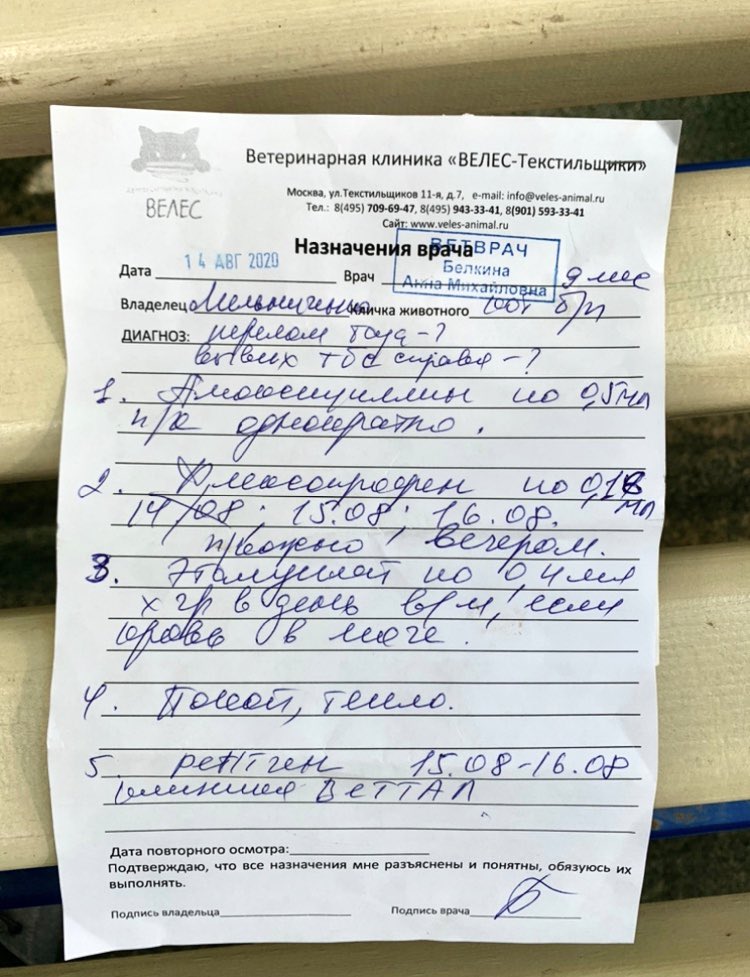 ВЕЛЕС
Ветеринарная клиника «ВЕЛЕС-Текстильщики»
Москва, ул.Текстильщиков 11-я, д.7, e-mail: info@veles-animal.ru
Тел.: 8(495) 709-69-47, 8(495) 943-33-41, 8(901) 593-33-41
Сайт: www.veles-animal.ru
Назначения врача
ВЕТВРАЧ
Белкина
Анна Михайловна
Дата 14 АВГ 2020 Врач 9 мес
Владелец Кличка животного кот б/п
ДИАГНОЗ: перелом таза-?
вывих тбс справа-?
1. Амоксициллин по 0,5мл
п/к однократно.
2. по
14/08; 15.08; 16.08. мл
п/кожно, вечером.
3. Этамзилат по 0,4мл
в день в/м, если
кровь в моче.
4. Покой, тепло.
5. рентген 15.08-16.08
клиника ВЕТТАЛ
Дата повторного осмотра:
Подтверждаю, что все назначения мне разъяснены и понятны, обязуюсь их
выполнять.
Подпись владельца Подпись врача